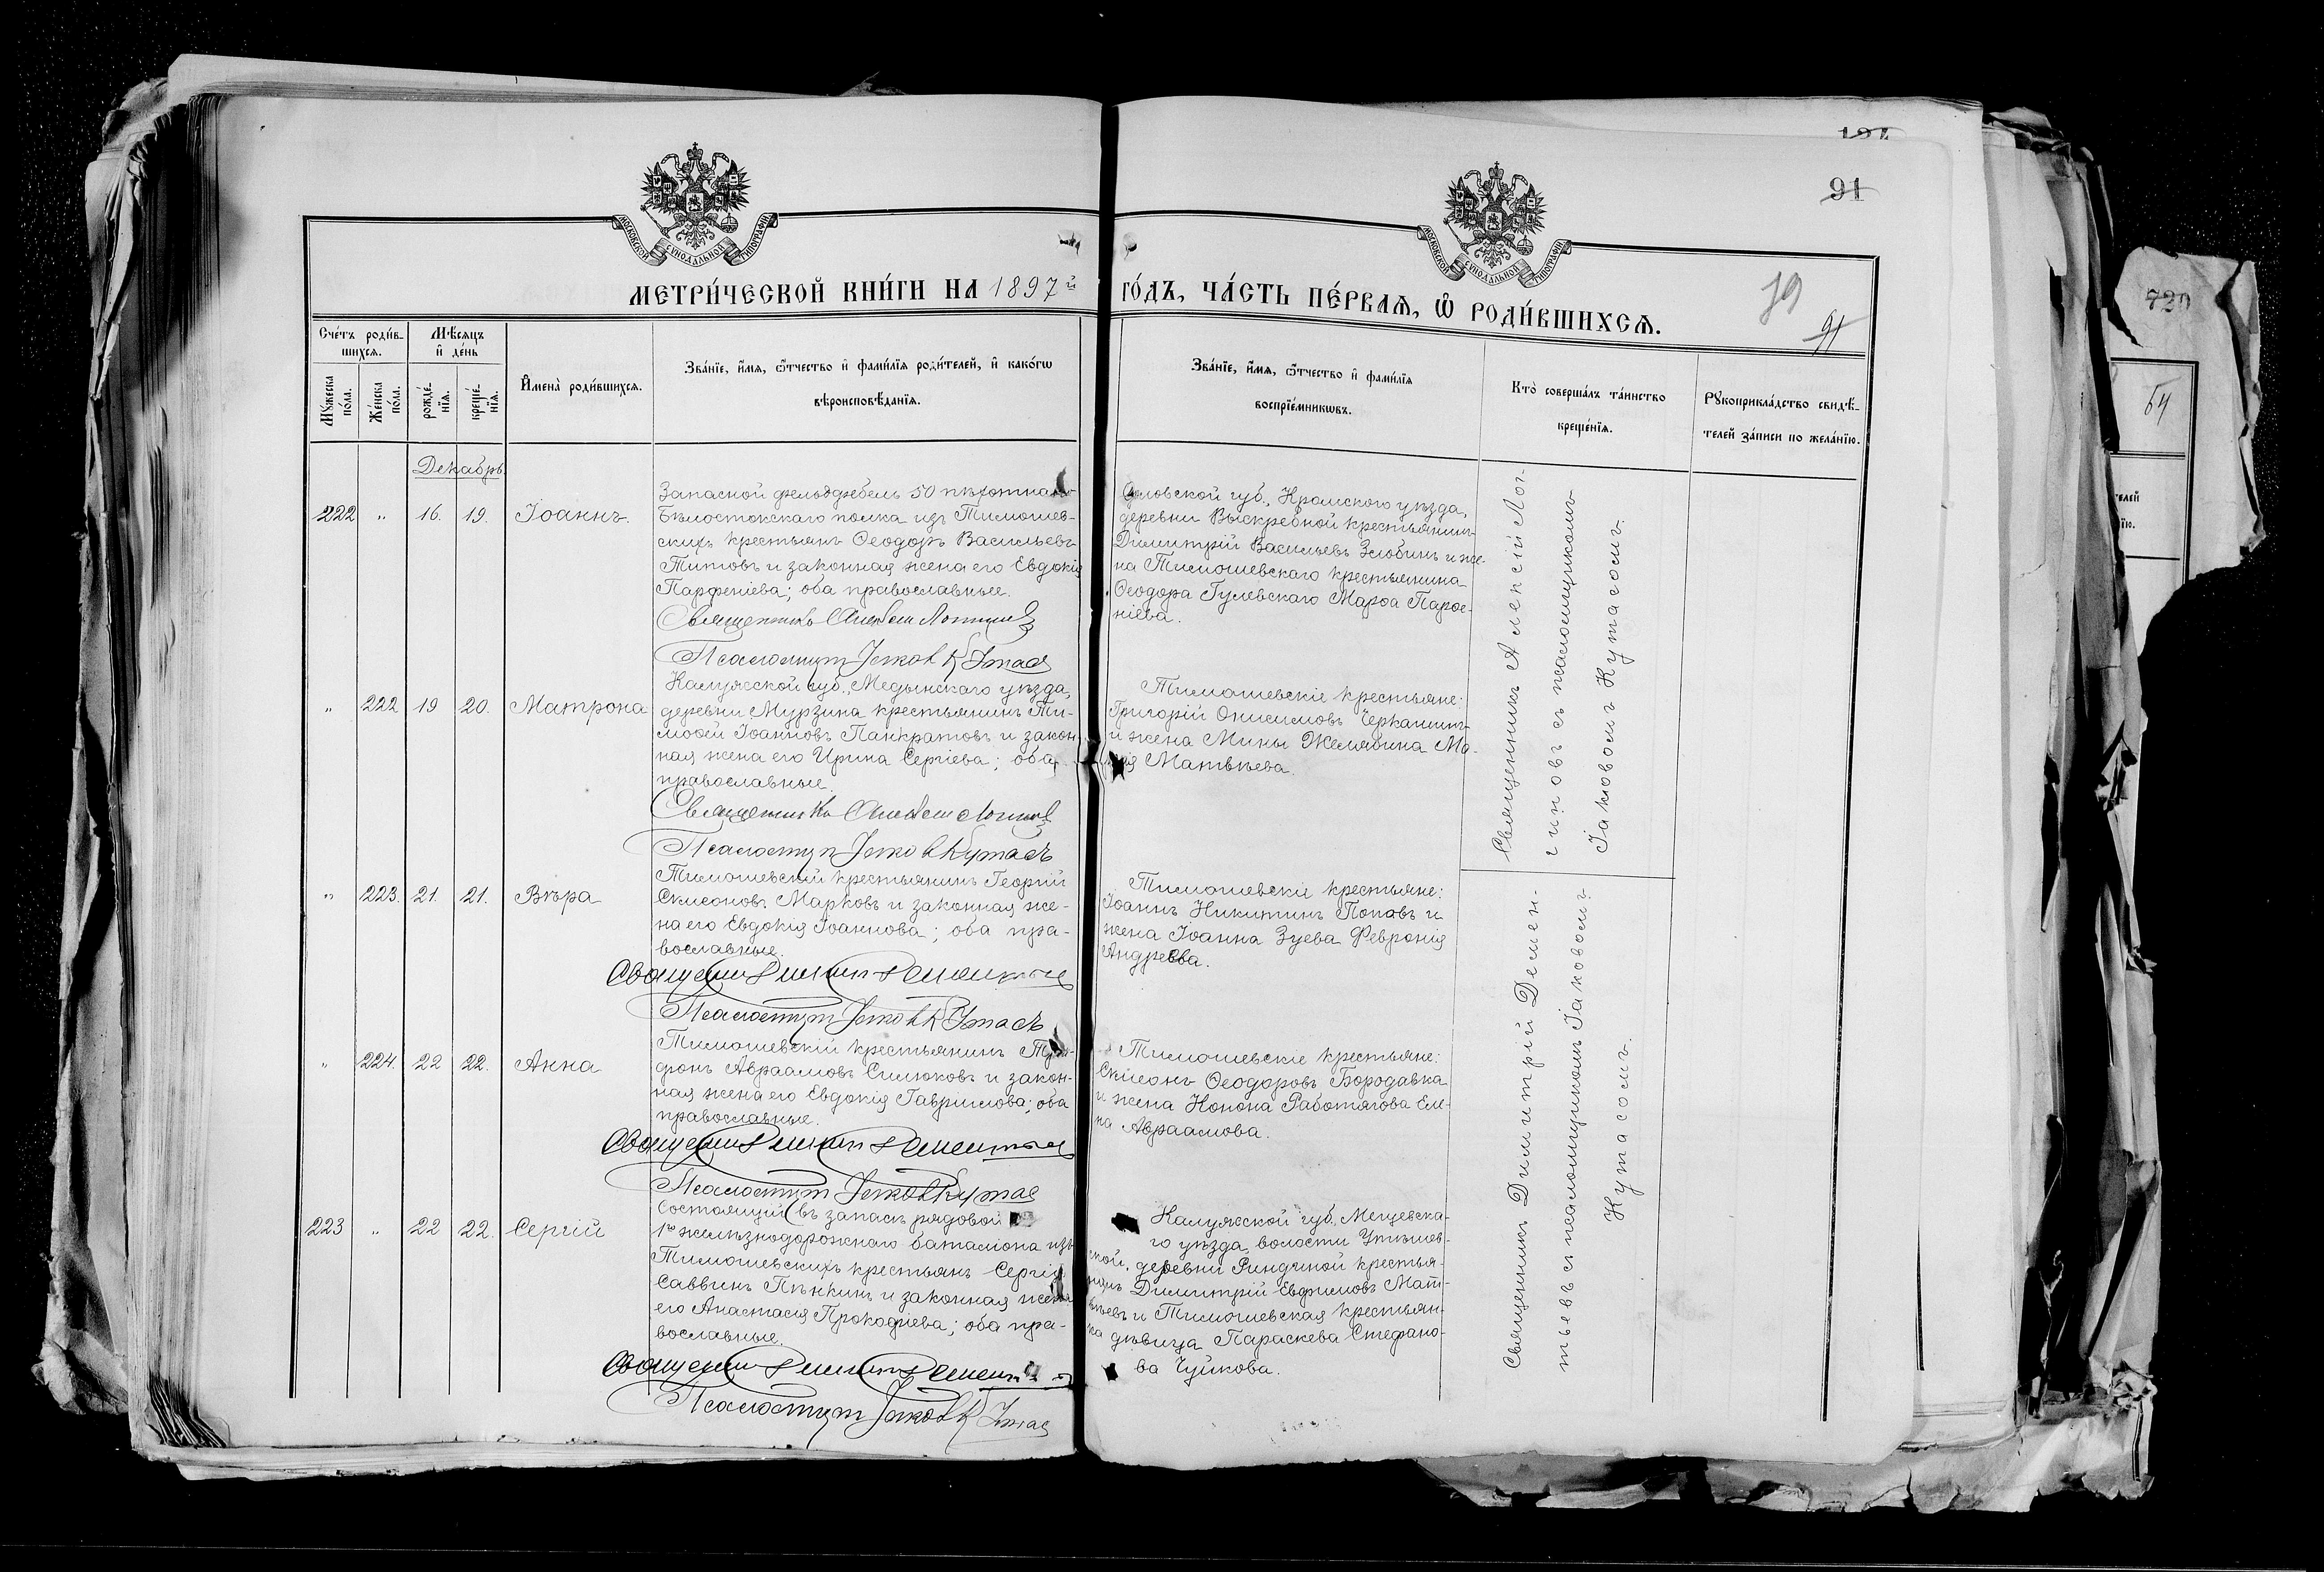 191
91
МОСКОВСКОЙ СѴНОДАЛЬНОЙ ТИПОГРАФІИ
МОСКОВСКОЙ СѴНОДАЛЬНОЙ ТИПОГРАФІИ
МЕТРИ́ЧЕСКОЙ КНИ́ГИ НА 1897й ГО́ДЪ, ЧА́СТЬ ПЕ́РВАѦ, Ѡ҆ РОДИ́ВШИХСѦ.
79
91
Сче́тъ роди́в-
шихсѧ.
Мꙋжеска по́ла.
Же́нска по́ла.
Мѣ́сѧцъ
и҆ де́нь
рожде́-
нїѧ.
креще́-
нїѧ.
И҆мена̀ роди́вшихсѧ.
Зва́нїе, и҆́мѧ, ѻ҆́тчество и҆ фами́лїѧ роди́телей, и҆ како́гѡ
вѣроисповѣ́данїѧ.
Зва́нїе, и҆́мѧ, ѻ҆́тчество и҆ фами́лїѧ
воспрїе́мникѡвъ.
Кто̀ соверша́лъ та́инство
креще́нїѧ.
Рꙋкоприкла́дство свидѣ́-
телей за́писи по жела́нїю.
Декабрь
222 „ 16. 19. Іоаннъ.
Запасной фельдфебель 50 пѣхотнаго
Бѣлостокскаго полка изъ Тимошев-
скихъ крестьянъ Ѳеодоръ Васильевъ
Титовъ и законная жена его Евдокія
Парѳеніева; оба православные.
Священникъ Алексій Логгиновъ
Псаломщикъ Іаковъ Кутасъ
Орловской губ., Кромского уѣзда,
деревни Выскребной крестьянинъ
Димитрій Васильевъ Злобинъ и же-
на Тимошевскаго крестьянина
Ѳеодора Гулевскаго Марѳа Парѳе-
ніева.
„ 222 19 20. Матрона
Калужской губ., Медынскаго уѣзда,
деревни Мурзина крестьянинъ Ти-
моѳей Іоанновъ Панкратовъ и закон-
ная жена его Ирина Сергіева; оба
православные.
Священникъ Алексій Логгиновъ
Псаломщикъ Іаковъ Кутасъ
Тимошевскіе крестьяне:
Григорій Онисимовъ Черкашинъ
и жена Мины Желябина Ма-
рія Матвѣева.
Священникъ Алексій Лог-
гиновъ съ псаломщикомъ
Іаковомъ Кутасомъ.
„ 223. 21. 21. Вѣра
Тимошевскій крестьянинъ Георгій
Симеоновъ Марковъ и законная же-
на его Евдокія Іоаннова; оба пра-
вославные.
Священникъ Димитрій Дементьевъ
Псаломщикъ Іаковъ Кутасъ
Тимошевскіе крестьяне:
Іоаннъ Никитинъ Поповъ и
жена Іоанна Зуева Февронія
Андреева.
„ 224. 22 22. Анна
Тимошевскій крестьянинъ Три-
фонъ Авраамовъ Симоковъ и закон-
ная жена его Евдокія Гаврилова; оба
православные.
Священникъ Димитрій Дементьевъ
Псаломщикъ Іаковъ Кутасъ
Тимошевскіе крестьяне:
Симеонъ Ѳеодоровъ Бородавка
и жена Конона Работягова Еле-
на Авраамова.
223 „ 22 22. Сергій
Состоящій въ запасѣ рядовой
1го желѣзнодорожнаго баталіона изъ
Тимошевскихъ крестьянъ Сергій
Саввинъ Пѣнкинъ и законная жена
его Анастасія Прокофіева; оба пра-
вославные.
Священникъ Димитрій Дементьевъ
Псаломщикъ Іаковъ Кутасъ
Калужской губ. Мещевска-
го уѣзда, волости Утѣшев-
ской, деревни Риндиной крестья-
нинъ Димитрій Евфимовъ Мат-
вѣевъ и Тимошевская крестьян-
ка дѣвица Параскева Стефано-
ва Чуйкова.
Священникъ Димитрій Демен-
тьевъ съ псаломщикомъ Іаковомъ
Кутасомъ.
720
64
телей
їю.